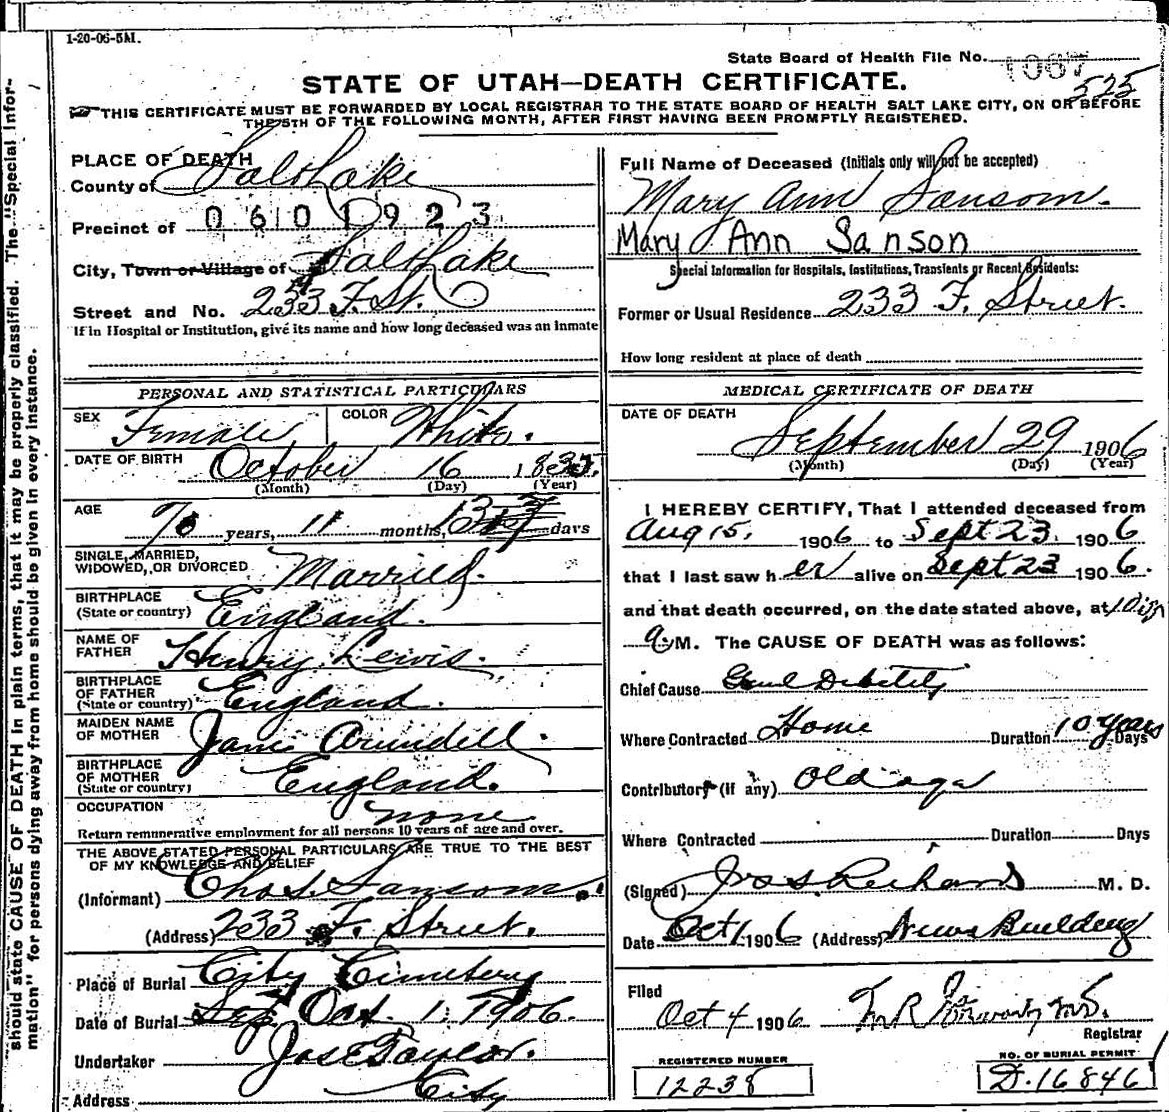 1-20-06-5M.
State Board of Health File No. 1067
525
STATE OF UTAH—DEATH CERTIFICATE.
THIS CERTIFICATE MUST BE FORWARDED BY LOCAL REGISTRAR TO THE STATE BOARD OF HEALTH SALT LAKE CITY, ON OR BEFORE
THE 5TH OF THE FOLLOWING MONTH, AFTER FIRST HAVING BEEN PROMPTLY REGISTERED.
should state CAUSE OF DEATH in plain terms, that it may be properly classified. The "Special Infor-
mation" for persons dying away from home should be given in every instance.
PLACE OF DEATH
County of Salt Lake
Precinct of 0601923
City, Town or Village of Salt Lake
Street and No. 233 F. St.
If in Hospital or Institution, give its name and how long deceased was an inmate
Full Name of Deceased (Initials only will not be accepted)
Mary Ann Sansom.
Mary Ann Sanson
Special Information for Hospitals, Institutions, Transients or Recent Residents:
Former or Usual Residence 233 F. Street.
How long resident at place of death
PERSONAL AND STATISTICAL PARTICULARS
SEX Female COLOR White.
DATE OF BIRTH October 16 183
(Month) (Day) (Year)
AGE
years, 11 months, 13 days
SINGLE, MARRIED,
WIDOWED, OR DIVORCED Married.
BIRTHPLACE
(State or country) England.
NAME OF
FATHER Henry Lewis.
BIRTHPLACE
OF FATHER
(State or country) England.
MAIDEN NAME
OF MOTHER Jane Arundell.
BIRTHPLACE
OF MOTHER
(State or country) England.
OCCUPATION none
Return remunerative employment for all persons 10 years of age and over.
THE ABOVE STATED PERSONAL PARTICULARS ARE TRUE TO THE BEST
OF MY KNOWLEDGE AND BELIEF
(Informant) Chas. Sansom.
(Address) 233 F. Street.
Place of Burial City Cemetery
Date of Burial Sep Oct. 1. 1906.
Undertaker Jos E Taylor.
Address City
MEDICAL CERTIFICATE OF DEATH
DATE OF DEATH
September 29 1906
(Month) (Day) (Year)
I HEREBY CERTIFY, That I attended deceased from
Aug 15. 1906 to Sept 23. 1906
that I last saw her alive on Sept 23 1906.
and that death occurred, on the date stated above, at 10
a M. The CAUSE OF DEATH was as follows:
Chief Cause Genl Debility
Where Contracted Home Duration 10 years Days
Contributory (if any) Old age
Where Contracted Duration Days
(Signed) Jos S Richards M. D.
Date Oct 1 1906 (Address) News Building
Filed
Oct 4 1906 M.D.
Registrar
REGISTERED NUMBER
12238
NO. OF BURIAL PERMIT
D. 16846